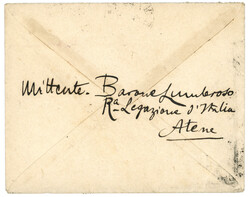 Mittente - Barone Lumbroso
Rª Legazione d'Italia
Atene